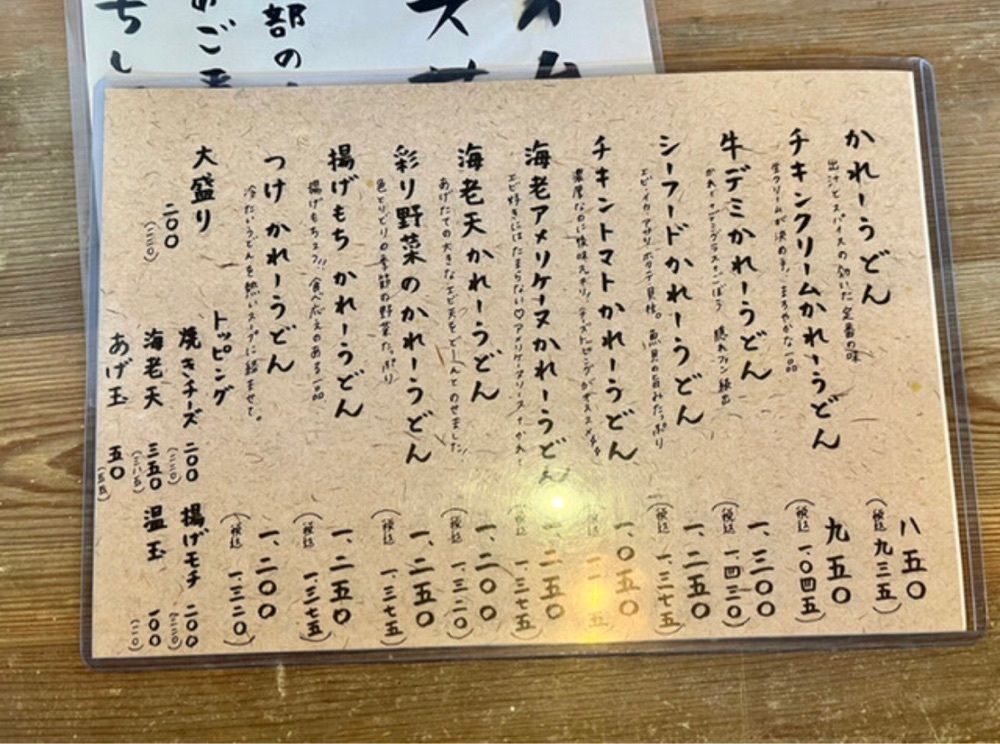 かれーうどん
出汁とスパイスの効いた定番の味
八五〇
(税込 九三五)
チキンクリームかれーうどん
生クリームが決め手!まろやかな一品
九五〇
(税込 一、〇四五)
牛デミかれーうどん
かれー+デミグラス+ごぼう 隠れファン続出
一、三〇〇
(税込 一、四三〇)
シーフードかれーうどん
エビ・イカ・アサリ・ホタテ貝柱。魚貝の旨みたっぷり
一、二五〇
(税込 一、三七五)
チキントマトかれーうどん
濃厚なのに後味スッキリ!チーズトッピングがオススメ
一、〇五〇
海老アメリケーヌかれーうどん
エビ好きにはたまらない♡アメリケーヌソース+かれー
二五〇
(税込 一、三七五)
海老天かれーうどん
あげたての大きなエビ天をどーんとのせました!!
一、二〇〇
(税込 一、三二〇)
彩り野菜のかれーうどん
色とりどりの季節の野菜たっぷり
一、二五〇
(税込 一、三七五)
揚げもち かれーうどん
揚げもち2つ!! 食べ応えのある一品
一、二五〇
(税込 一、三七五)
つけ かれーうどん
冷たいうどんを熱いスープに絡ませて。
一、二〇〇
(税込 一、三二〇)
大盛り
二〇〇
(二二〇)
トッピング
焼きチーズ 二〇〇
(二二〇)
揚げモチ 二〇〇
(二二〇)
海老天 三五〇
(三八五)
温玉 一〇〇
(一一〇)
あげ玉 五〇
(五五)
部の
あご
ちし